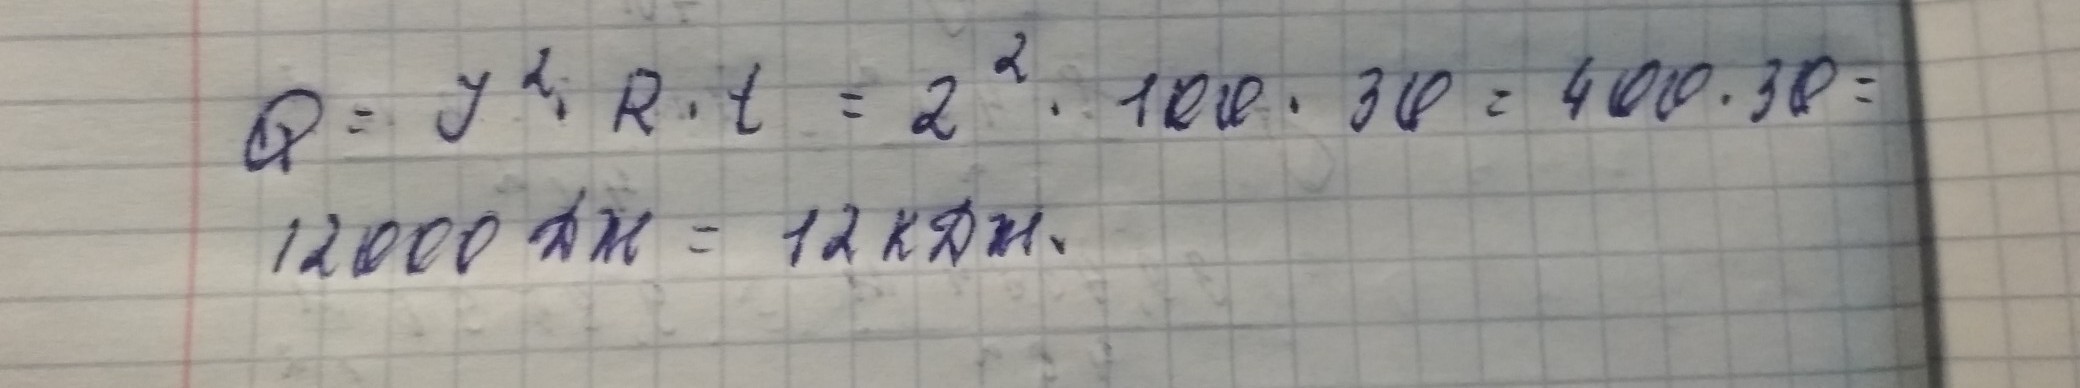 Q = J²· R · t = 2² · 100 · 30 = 400 · 30 =
12000 Дж = 12 кДж.